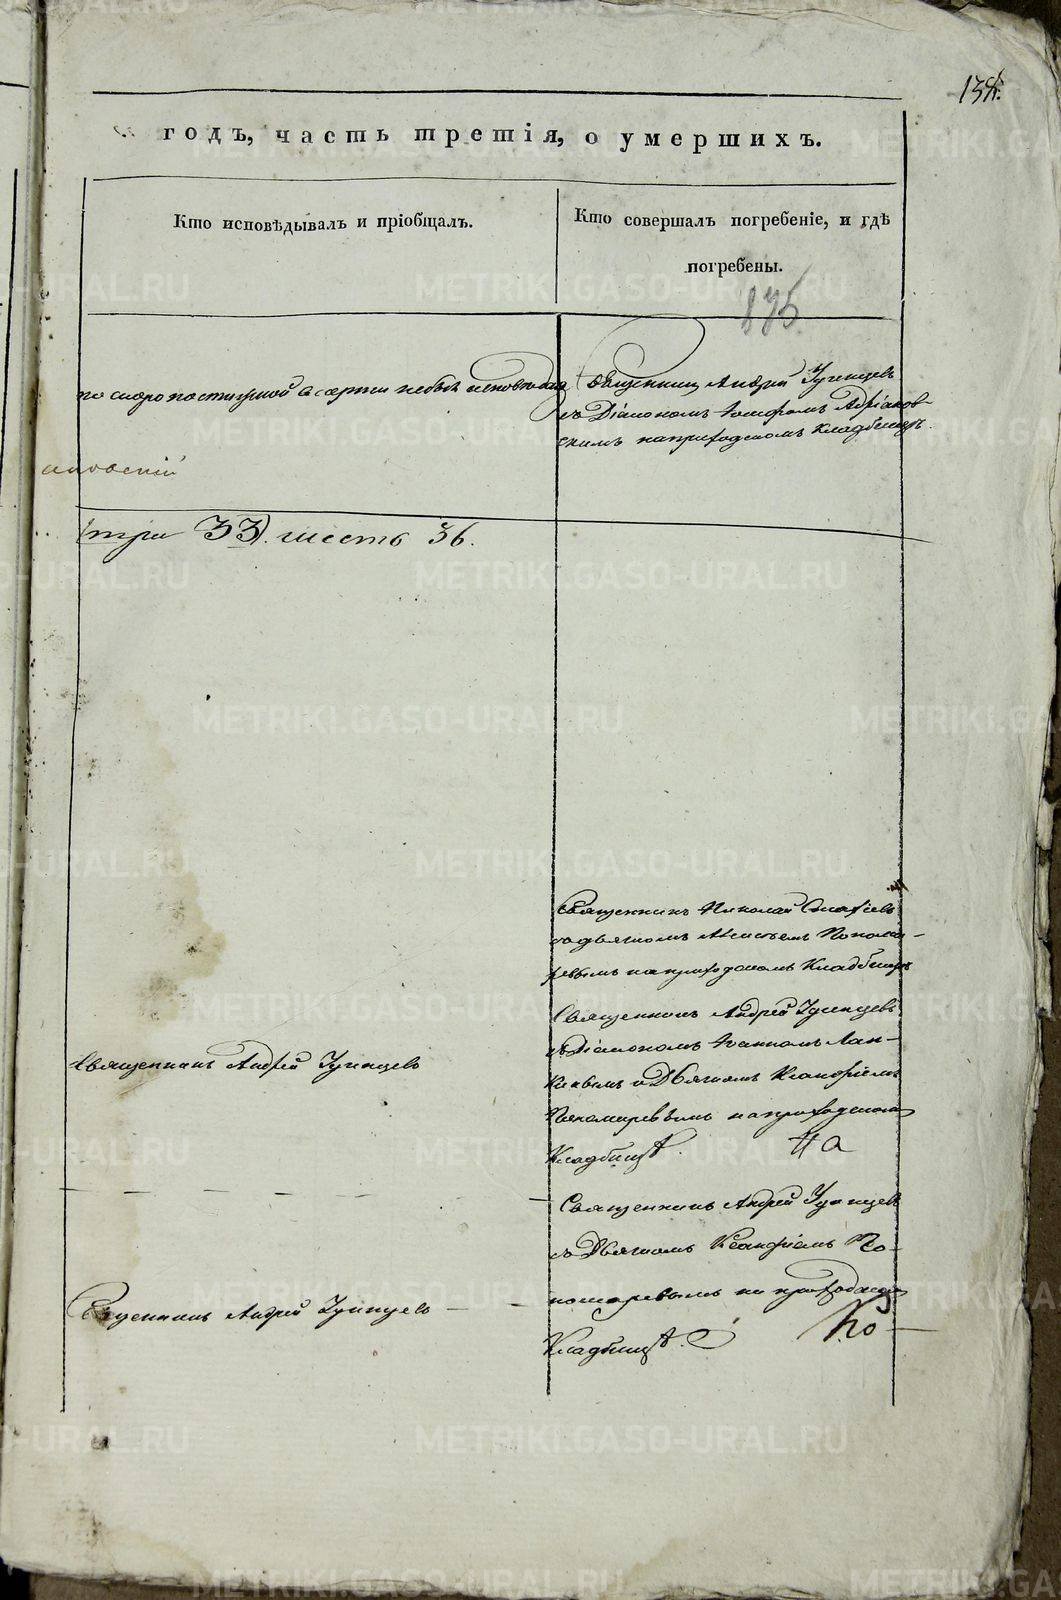 годъ, часть третія, о умершихъ.
Кто исповѣдывалъ и пріобщалъ.
Кто совершалъ погребеніе, и гдѣ
погребены.
по скоропостижной смерти небылъ исповѣдан
Священникъ Андрей Удинцевъ
съ Діакономъ Іосифомъ Адріанов-
скимъ на приходскомъ кладбищѣ.
(три 33). шесть 36.
Священникъ Николай
съ дьячкомъ Понома-
ревымъ на приходскомъ Кладбищѣ
Священникъ Андрей Удинцевъ
Священникъ Андрей Удинцевъ
съ Діакономъ Іоанномъ
и Дьячкомъ Ксанфіемъ
Пономаревымъ на приходскомъ
Кладбищѣ. На
Священникъ Андрей Удинцевъ
Священникъ Андрей Удинцевъ
съ Дьячкомъ Ксанфіемъ По-
номаревымъ на приходскомъ
Кладбищѣ. По
METRIKI.GASO-URAL.RU